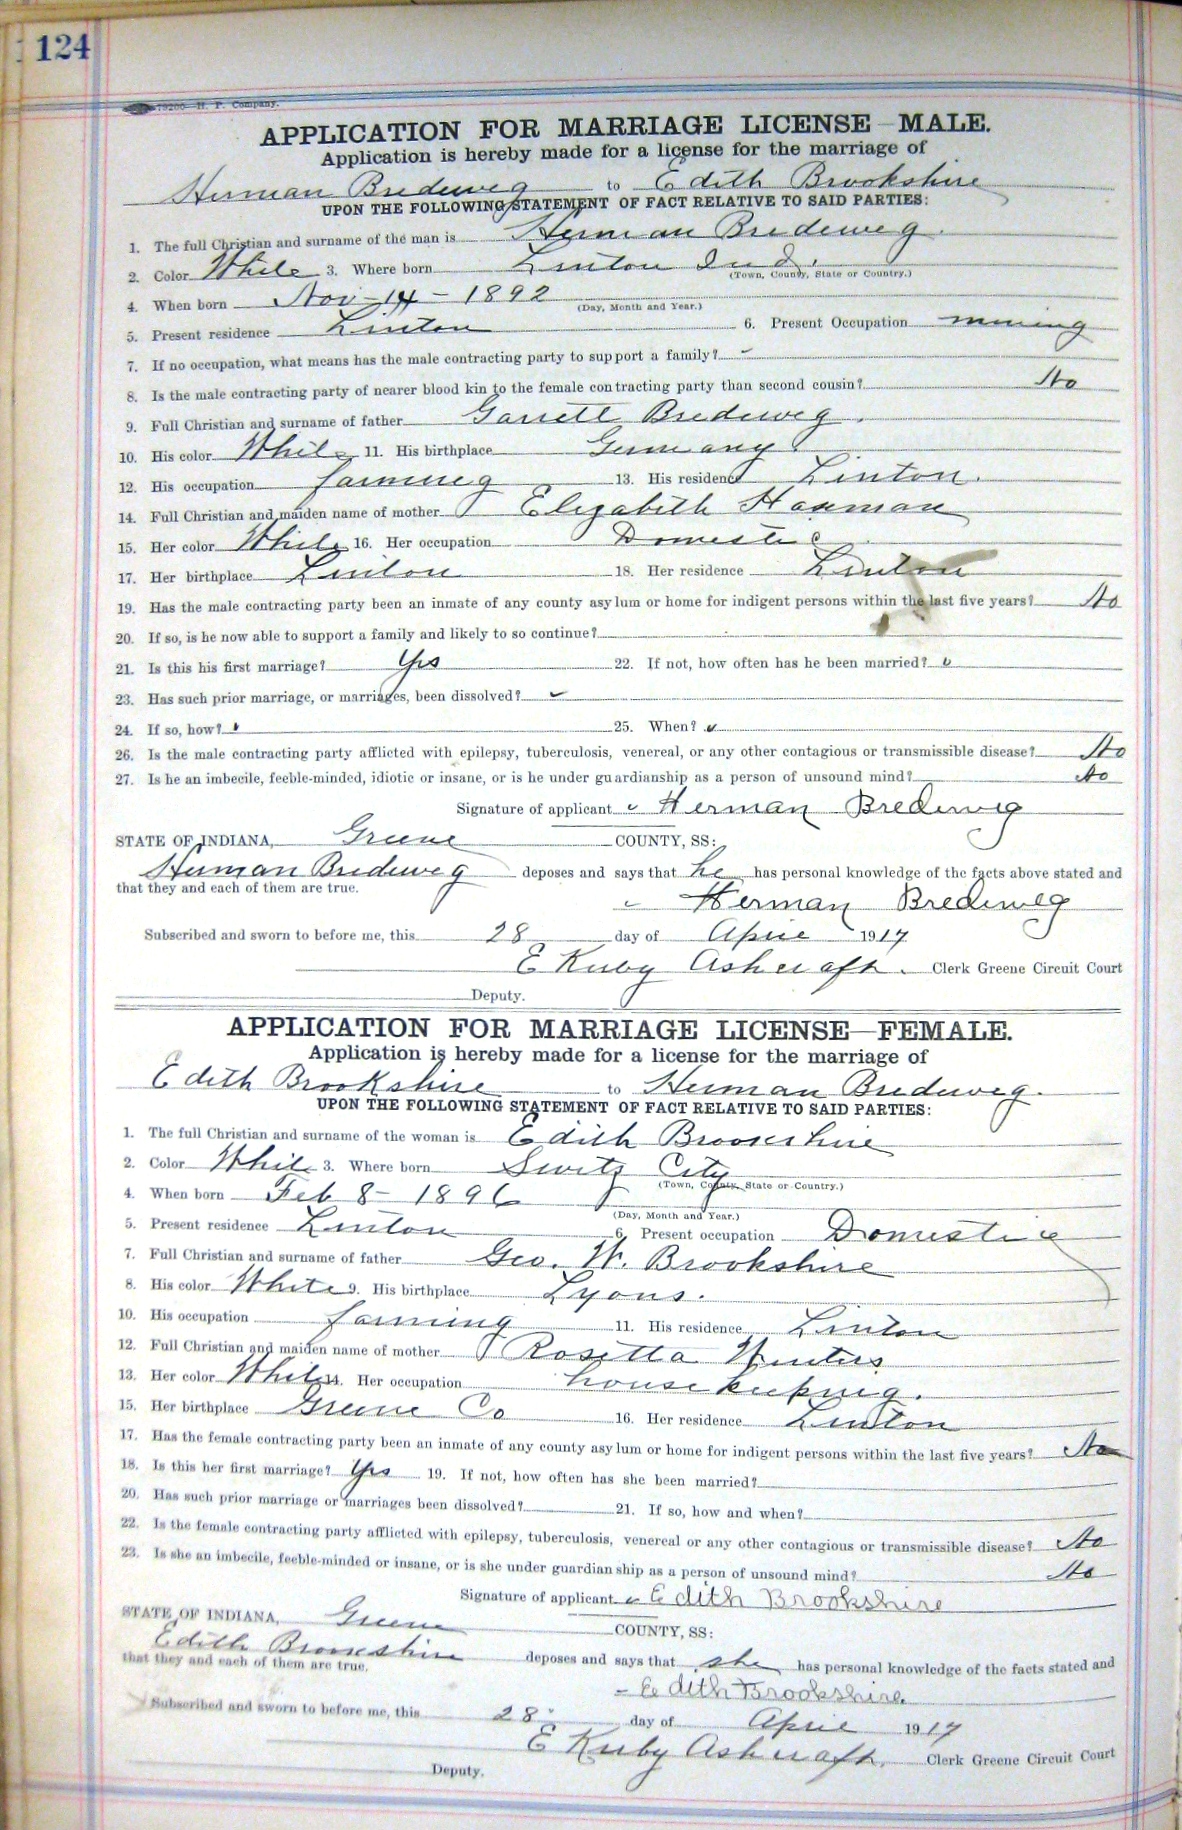 124
79200—H. P. Company.
APPLICATION FOR MARRIAGE LICENSE—MALE.
Application is hereby made for a license for the marriage of
Herman Bredeweg to Edith Brookshire
UPON THE FOLLOWING STATEMENT OF FACT RELATIVE TO SAID PARTIES:
1. The full Christian and surname of the man is Herman Bredeweg.
2. Color White 3. Where born Linton Ind.
(Town, County, State or Country.)
4. When born Nov-14-1892
(Day, Month and Year.)
5. Present residence Linton 6. Present Occupation mining
7. If no occupation, what means has the male contracting party to support a family?
8. Is the male contracting party of nearer blood kin to the female contracting party than second cousin? No
9. Full Christian and surname of father Garrett Bredeweg.
10. His color White 11. His birthplace Germany
12. His occupation farming 13. His residence Linton.
14. Full Christian and maiden name of mother Elizabeth
15. Her color White 16. Her occupation Domestic
17. Her birthplace Linton 18. Her residence Linton
19. Has the male contracting party been an inmate of any county asylum or home for indigent persons within the last five years? No
20. If so, is he now able to support a family and likely to so continue?
21. Is this his first marriage? Yes 22. If not, how often has he been married?
23. Has such prior marriage, or marriages, been dissolved?
24. If so, how? 25. When?
26. Is the male contracting party afflicted with epilepsy, tuberculosis, venereal, or any other contagious or transmissible disease? No
27. Is he an imbecile, feeble-minded, idiotic or insane, or is he under guardianship as a person of unsound mind? No
Signature of applicant Herman Bredeweg
STATE OF INDIANA, Greene COUNTY, SS:
Herman Bredeweg deposes and says that he has personal knowledge of the facts above stated and
that they and each of them are true.
Herman Bredeweg
Subscribed and sworn to before me, this 28 day of April 1917
E Kirby Ashcraft. Clerk Greene Circuit Court
Deputy.
APPLICATION FOR MARRIAGE LICENSE—FEMALE.
Application is hereby made for a license for the marriage of
Edith Brookshire to Herman Bredeweg.
UPON THE FOLLOWING STATEMENT OF FACT RELATIVE TO SAID PARTIES:
1. The full Christian and surname of the woman is Edith Brookshire
2. Color White 3. Where born Switz City
(Town, County, State or Country.)
4. When born Feb 8-1896
(Day, Month and Year.)
5. Present residence Linton 6. Present occupation Domestic
7. Full Christian and surname of father Geo. W. Brookshire
8. His color White 9. His birthplace Lyons.
10. His occupation farming 11. His residence Linton
12. Full Christian and maiden name of mother Rosetta Winters
13. Her color White 14. Her occupation housekeeping.
15. Her birthplace Greene Co 16. Her residence Linton
17. Has the female contracting party been an inmate of any county asylum or home for indigent persons within the last five years? No
18. Is this her first marriage? Yes 19. If not, how often has she been married?
20. Has such prior marriage or marriages been dissolved? 21. If so, how and when?
22. Is the female contracting party afflicted with epilepsy, tuberculosis, venereal or any other contagious or transmissible disease? No
23. Is she an imbecile, feeble-minded or insane, or is she under guardianship as a person of unsound mind? No
Signature of applicant Edith Brookshire
STATE OF INDIANA, Greene COUNTY, SS:
Edith Brookshire deposes and says that she has personal knowledge of the facts stated and
that they and each of them are true.
Edith Brookshire.
Subscribed and sworn to before me, this 28" day of April 1917
E Kirby Ashcraft. Clerk Greene Circuit Court
Deputy.